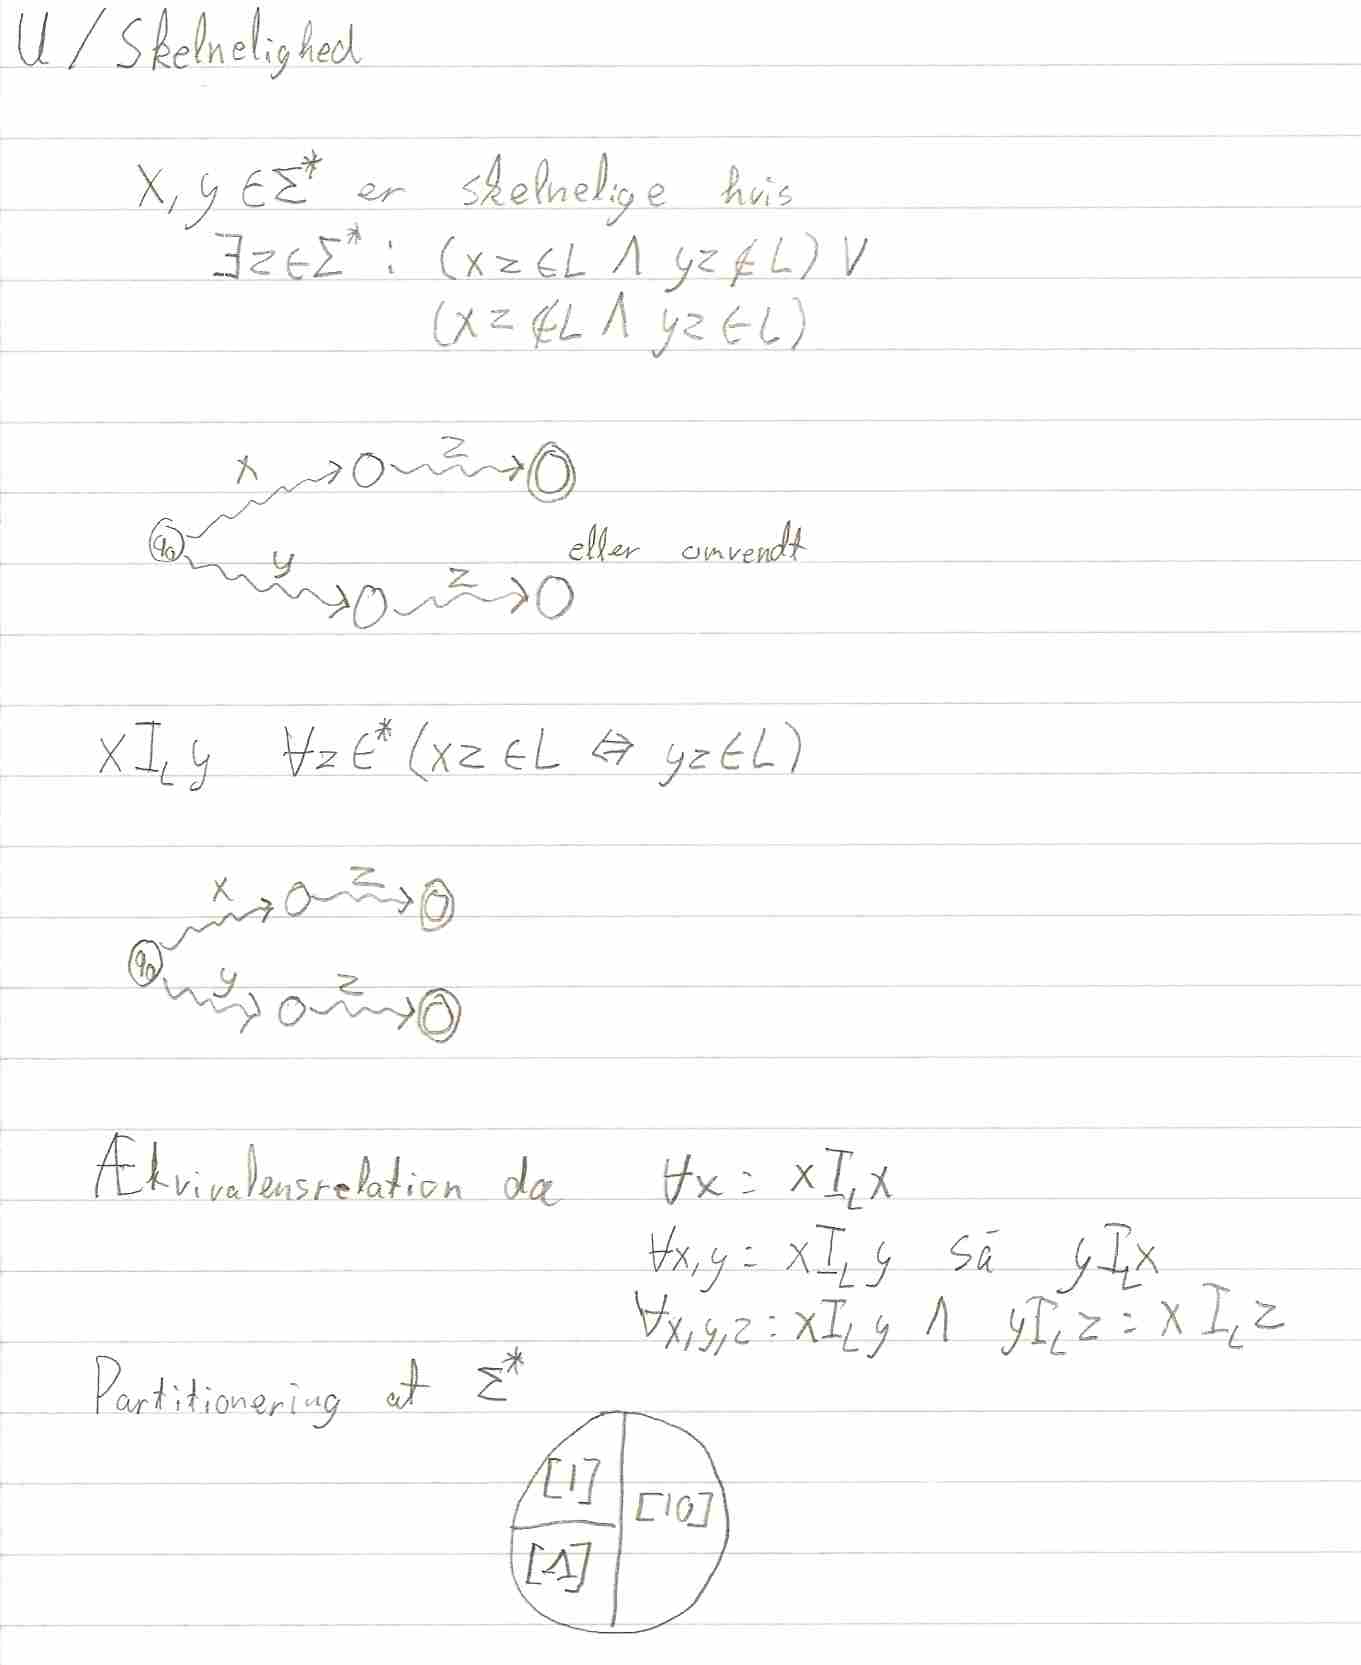 U / Skelnelighed
x, y ∈ Σ* er skelnelige hvis
∃z ∈ Σ* : (xz ∈ L ∧ yz ∉ L) ∨
(xz ∉ L ∧ yz ∈ L)
x z
q₀ eller omvendt
y z
x I_L y ∀z ∈* (xz ∈ L ⇔ yz ∈ L)
x z
q₀
y z
Ækvivalensrelation da ∀x : x I_L x
∀x, y : x I_L y så y I_L x
∀x, y, z : x I_L y ∧ y I_L z : x I_L z
Partitionering af Σ*
[1]
[10]
[Λ]